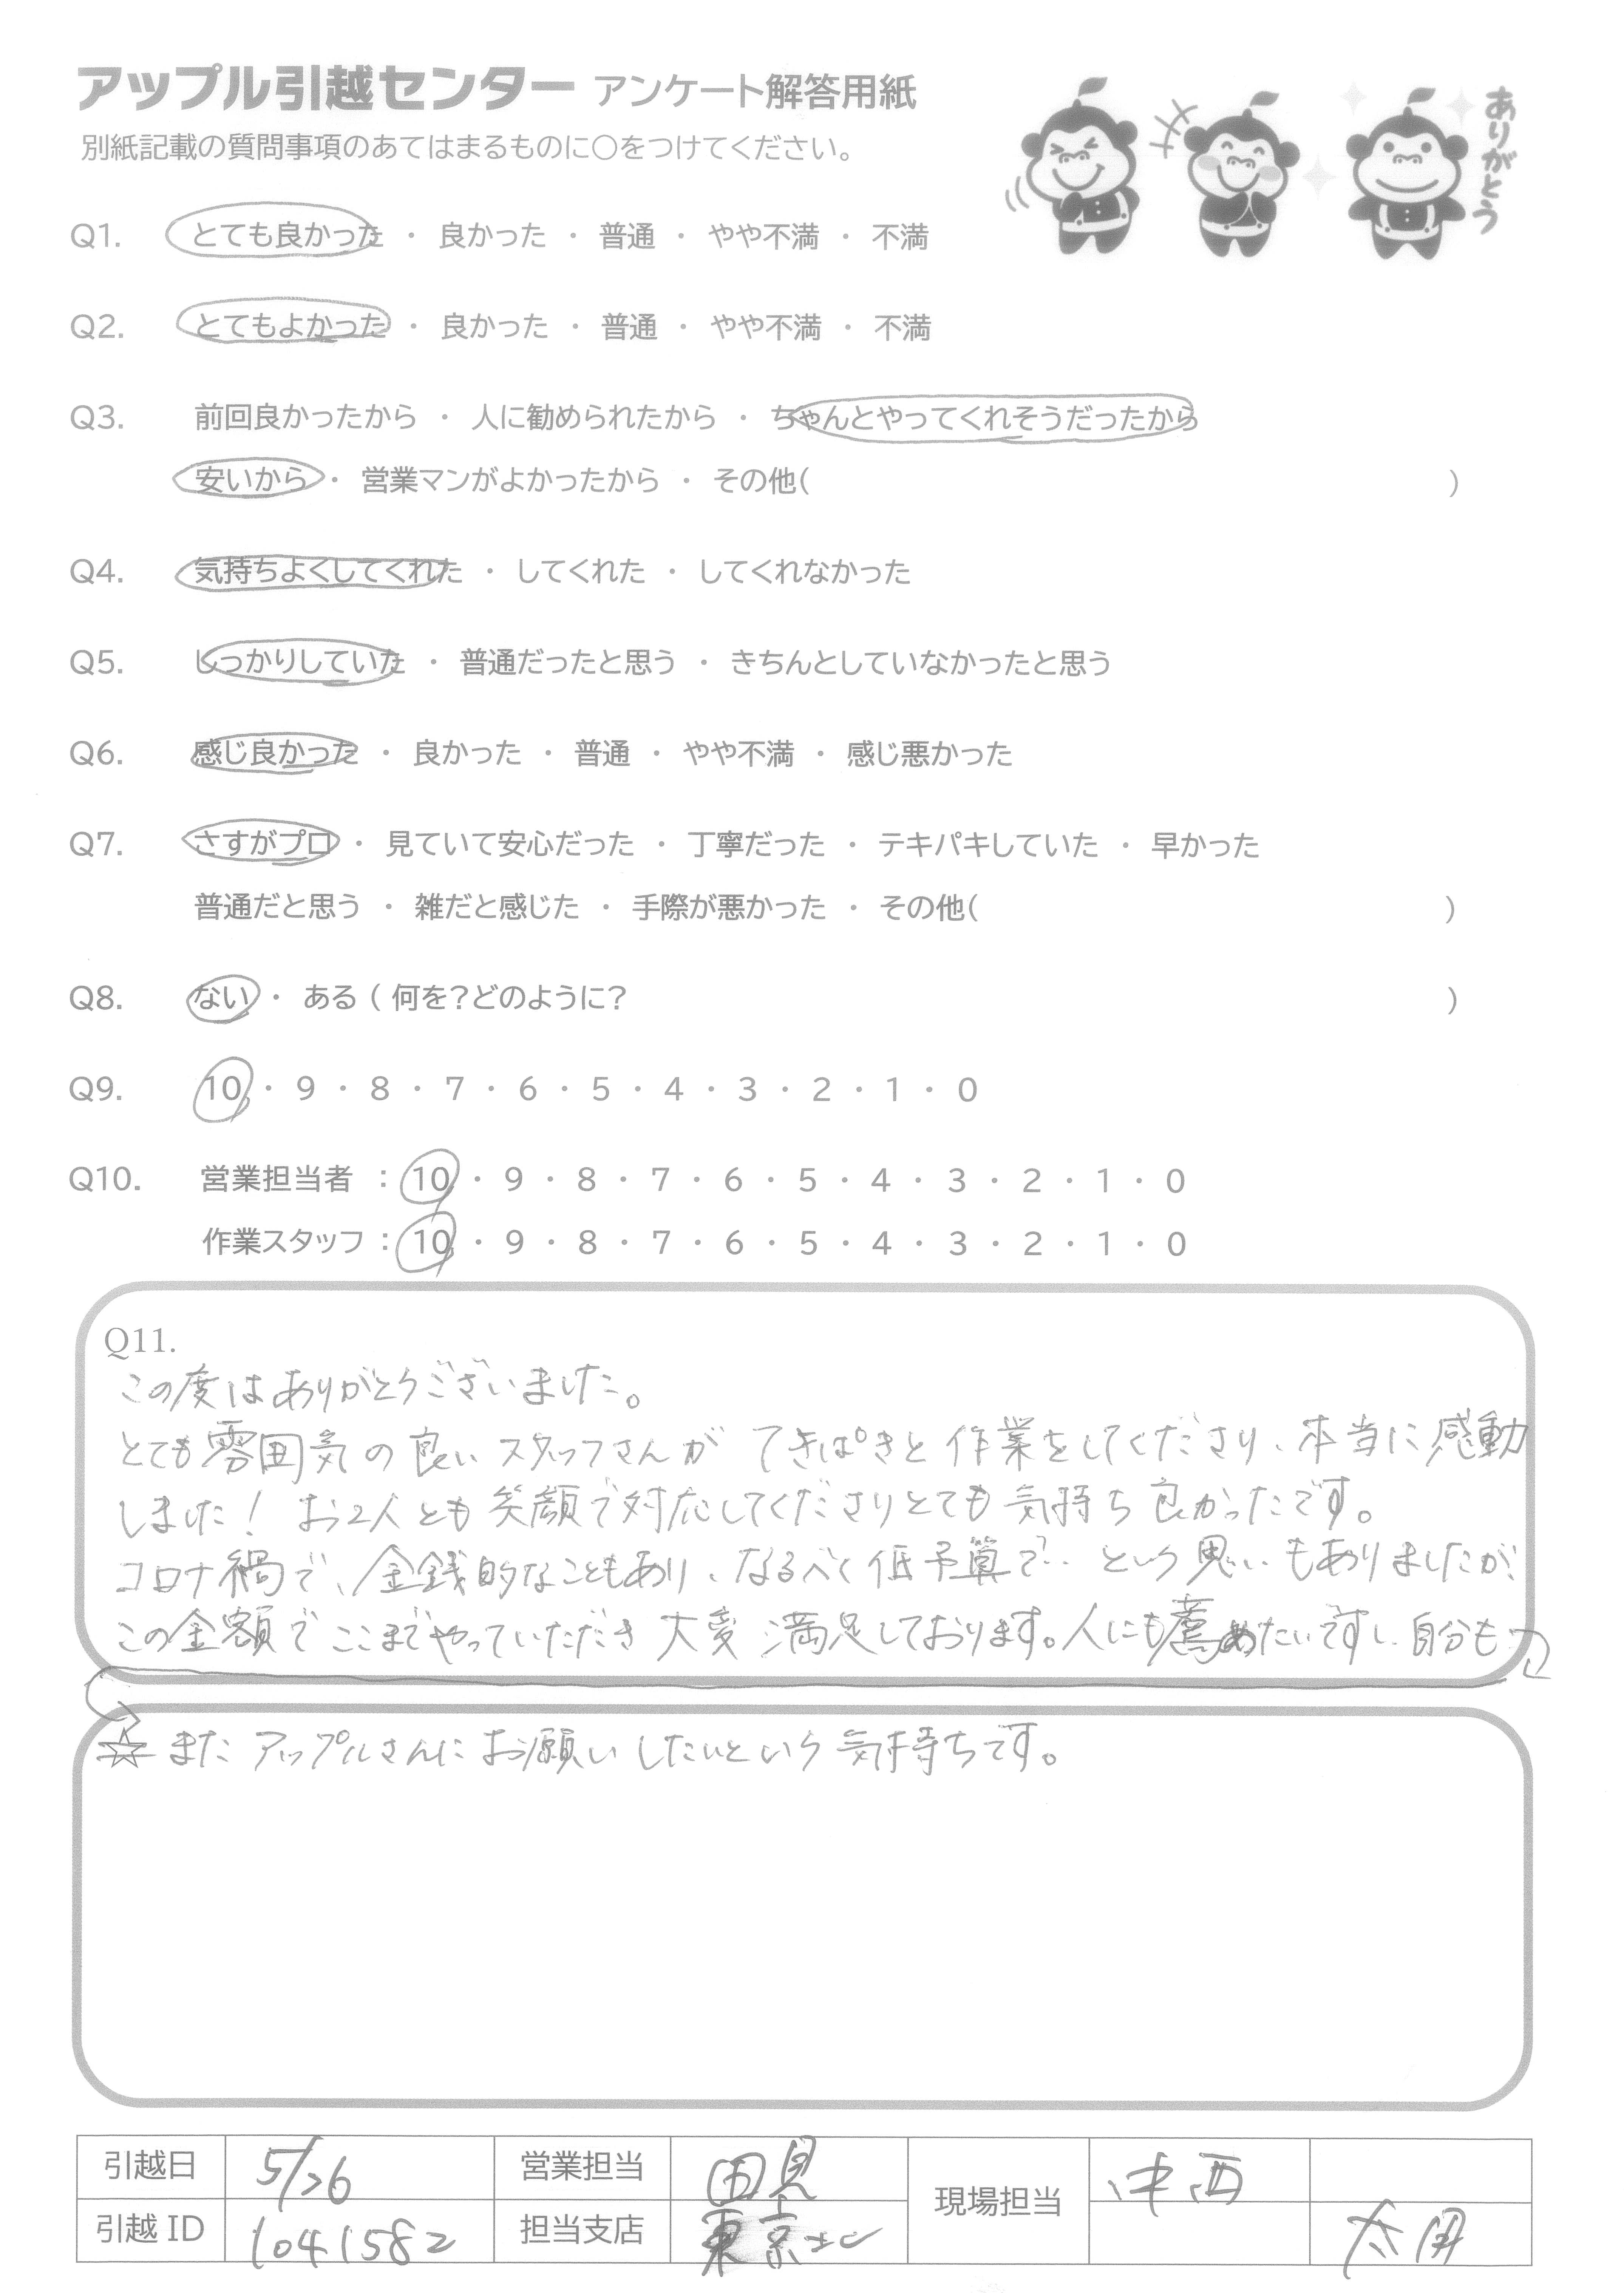 アップル引越センター アンケート解答用紙
別紙記載の質問事項のあてはまるものに○をつけてください。
ありがとう
Q1. とても良かった ・ 良かった ・ 普通 ・ やや不満 ・ 不満
Q2. とてもよかった ・ 良かった ・ 普通 ・ やや不満 ・ 不満
Q3. 前回良かったから ・ 人に勧められたから ・ ちゃんとやってくれそうだったから
安いから ・ 営業マンがよかったから ・ その他( )
Q4. 気持ちよくしてくれた ・ してくれた ・ してくれなかった
Q5. しっかりしていた ・ 普通だったと思う ・ きちんとしていなかったと思う
Q6. 感じ良かった ・ 良かった ・ 普通 ・ やや不満 ・ 感じ悪かった
Q7. さすがプロ ・ 見ていて安心だった ・ 丁寧だった ・ テキパキしていた ・ 早かった
普通だと思う ・ 雑だと感じた ・ 手際が悪かった ・ その他( )
Q8. ない ・ ある ( 何を?どのように? )
Q9. 10 ・ 9 ・ 8 ・ 7 ・ 6 ・ 5 ・ 4 ・ 3 ・ 2 ・ 1 ・ 0
Q10. 営業担当者 : 10 ・ 9 ・ 8 ・ 7 ・ 6 ・ 5 ・ 4 ・ 3 ・ 2 ・ 1 ・ 0
作業スタッフ : 10 ・ 9 ・ 8 ・ 7 ・ 6 ・ 5 ・ 4 ・ 3 ・ 2 ・ 1 ・ 0
Q11.
この度はありがとうございました。
とても雰囲気の良いスタッフさんが てきぱきと作業をしてくださり、本当に感動
しました! お2人とも笑顔で対応してくださりとても気持ち良かったです。
コロナ禍で、金銭的なこともあり、なるべく低予算で‥という思いもありましたが、
この金額でここまでやっていただき大変満足しております。人にも薦めたいですし、自分も
☆ またアップルさんにお願いしたいという気持ちです。
引越日 5/26 営業担当 現場担当 中西
引越 ID 1041582 担当支店 東京 太田